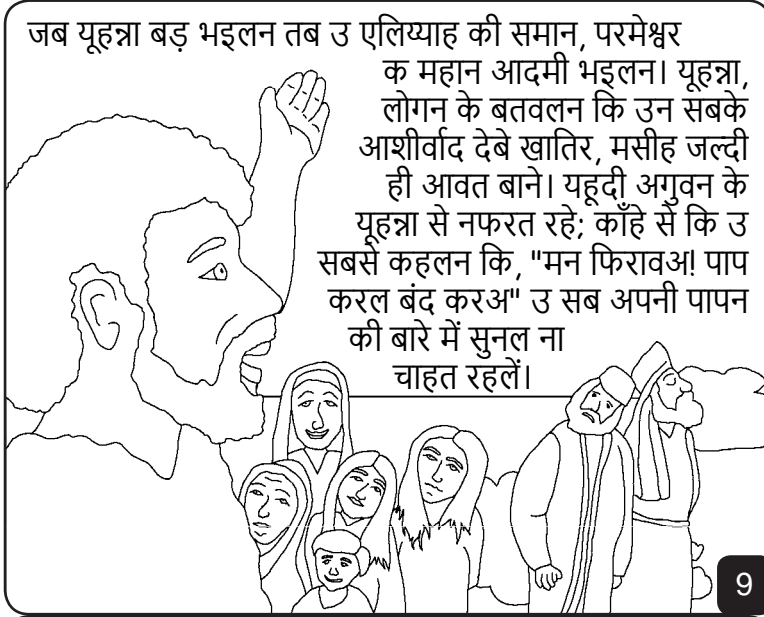 जब यूहन्ना बड़ भइलन तब उ एलिय्याह की समान, परमेश्वर
क महान आदमी भइलन। यूहन्ना,
लोगन के बतवलन कि उन सबके
आशीर्वाद देबे खातिर, मसीह जल्दी
ही आवत बाने। यहूदी अगुवन के
यूहन्ना से नफरत रहे; काँहे से कि उ
सबसे कहलन कि, "मन फिरावअ! पाप
करल बंद करअ" उ सब अपनी पापन
की बारे में सुनल ना
चाहत रहलें।
9